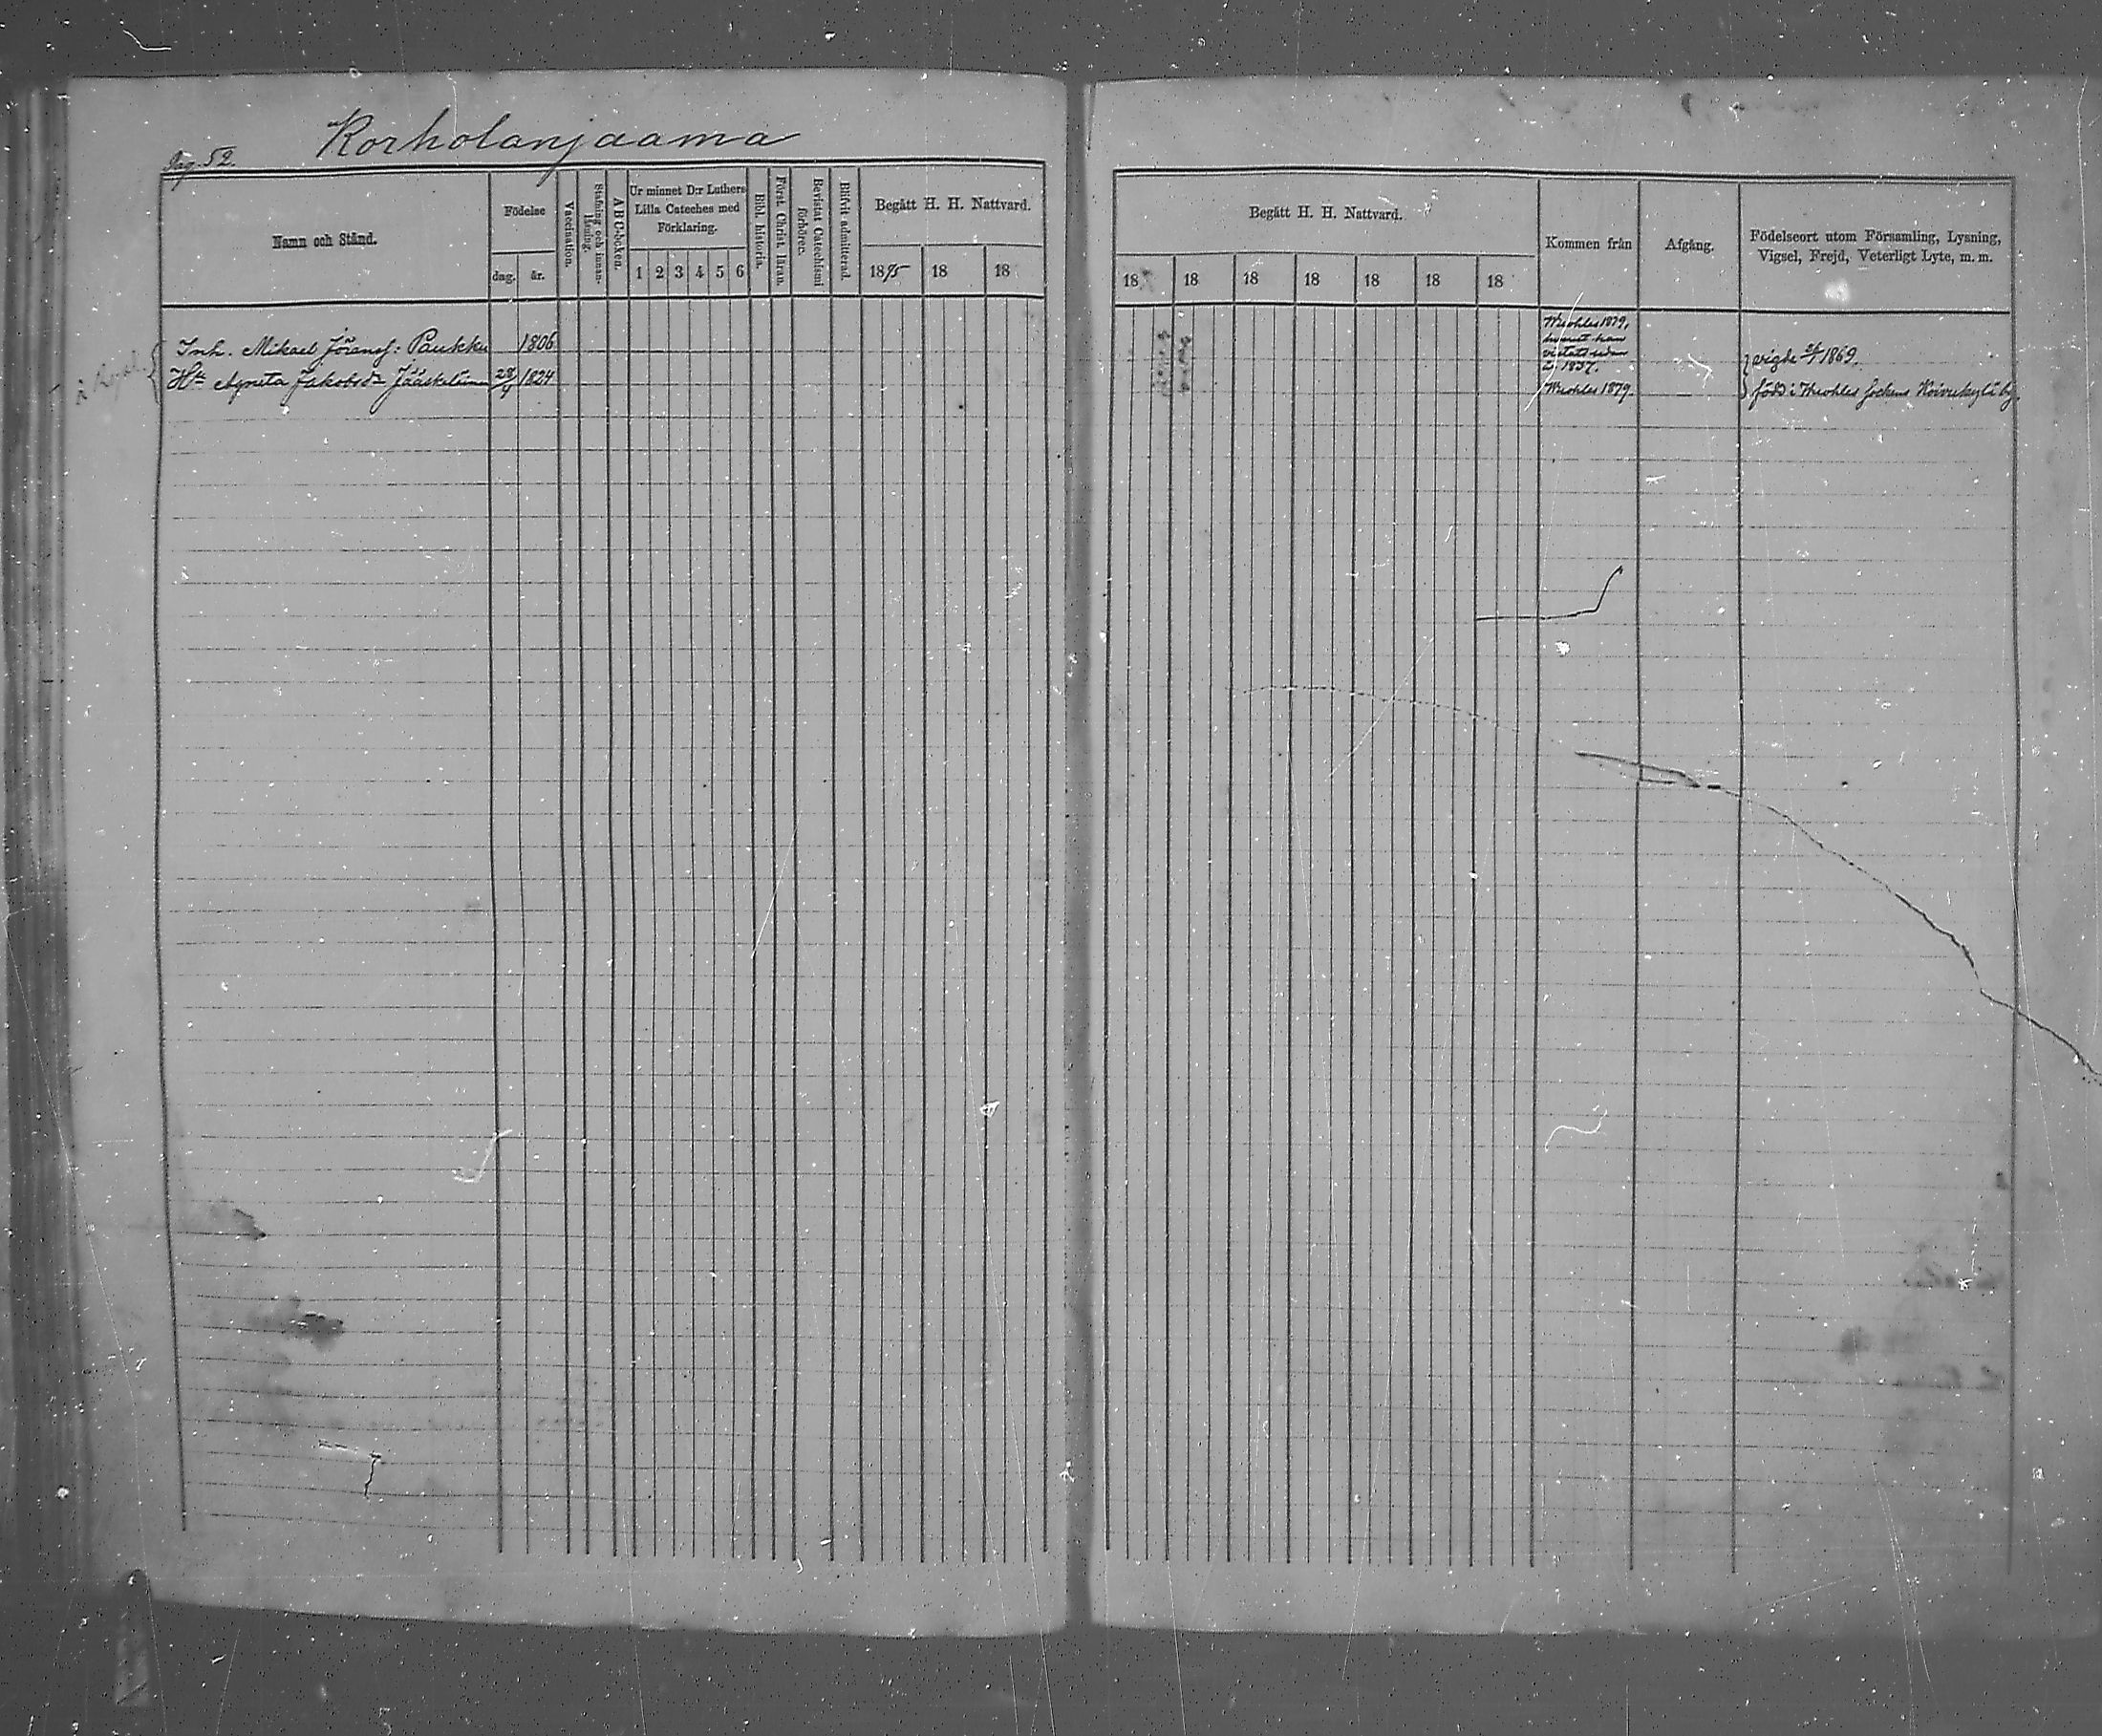 Korholanjaama
Pag. 52.
Namn och Stånd.
Födelse
dag. år.
Vaccination.
Stafning och innan-
läsning.
A B C-boken.
Ur minnet D:r Luthers
Lilla Cateches med
Förklaring.
1 2 3 4 5 6
Bibl. historia.
Först. Christ. läran.
Bevistat Catechismi
förhörec.
Blifvit admitterad.
Begått H. H. Nattvard.
18 18 18
Inh. Mikael Jöransf: Paukku 1806
Hu Agneta Jakobsdr Jääskeläinen 28/4 1824
Begått H. H. Nattvard.
18 18 18 18 18 18 18
Kommen från
Afgång.
Födelseort utom Församling, Lysning,
Vigsel, Frejd, Veterligt Lyte, m. m.
1879,
han
vistats
1857.
1879.
vigde 1869.
född i sockens by.